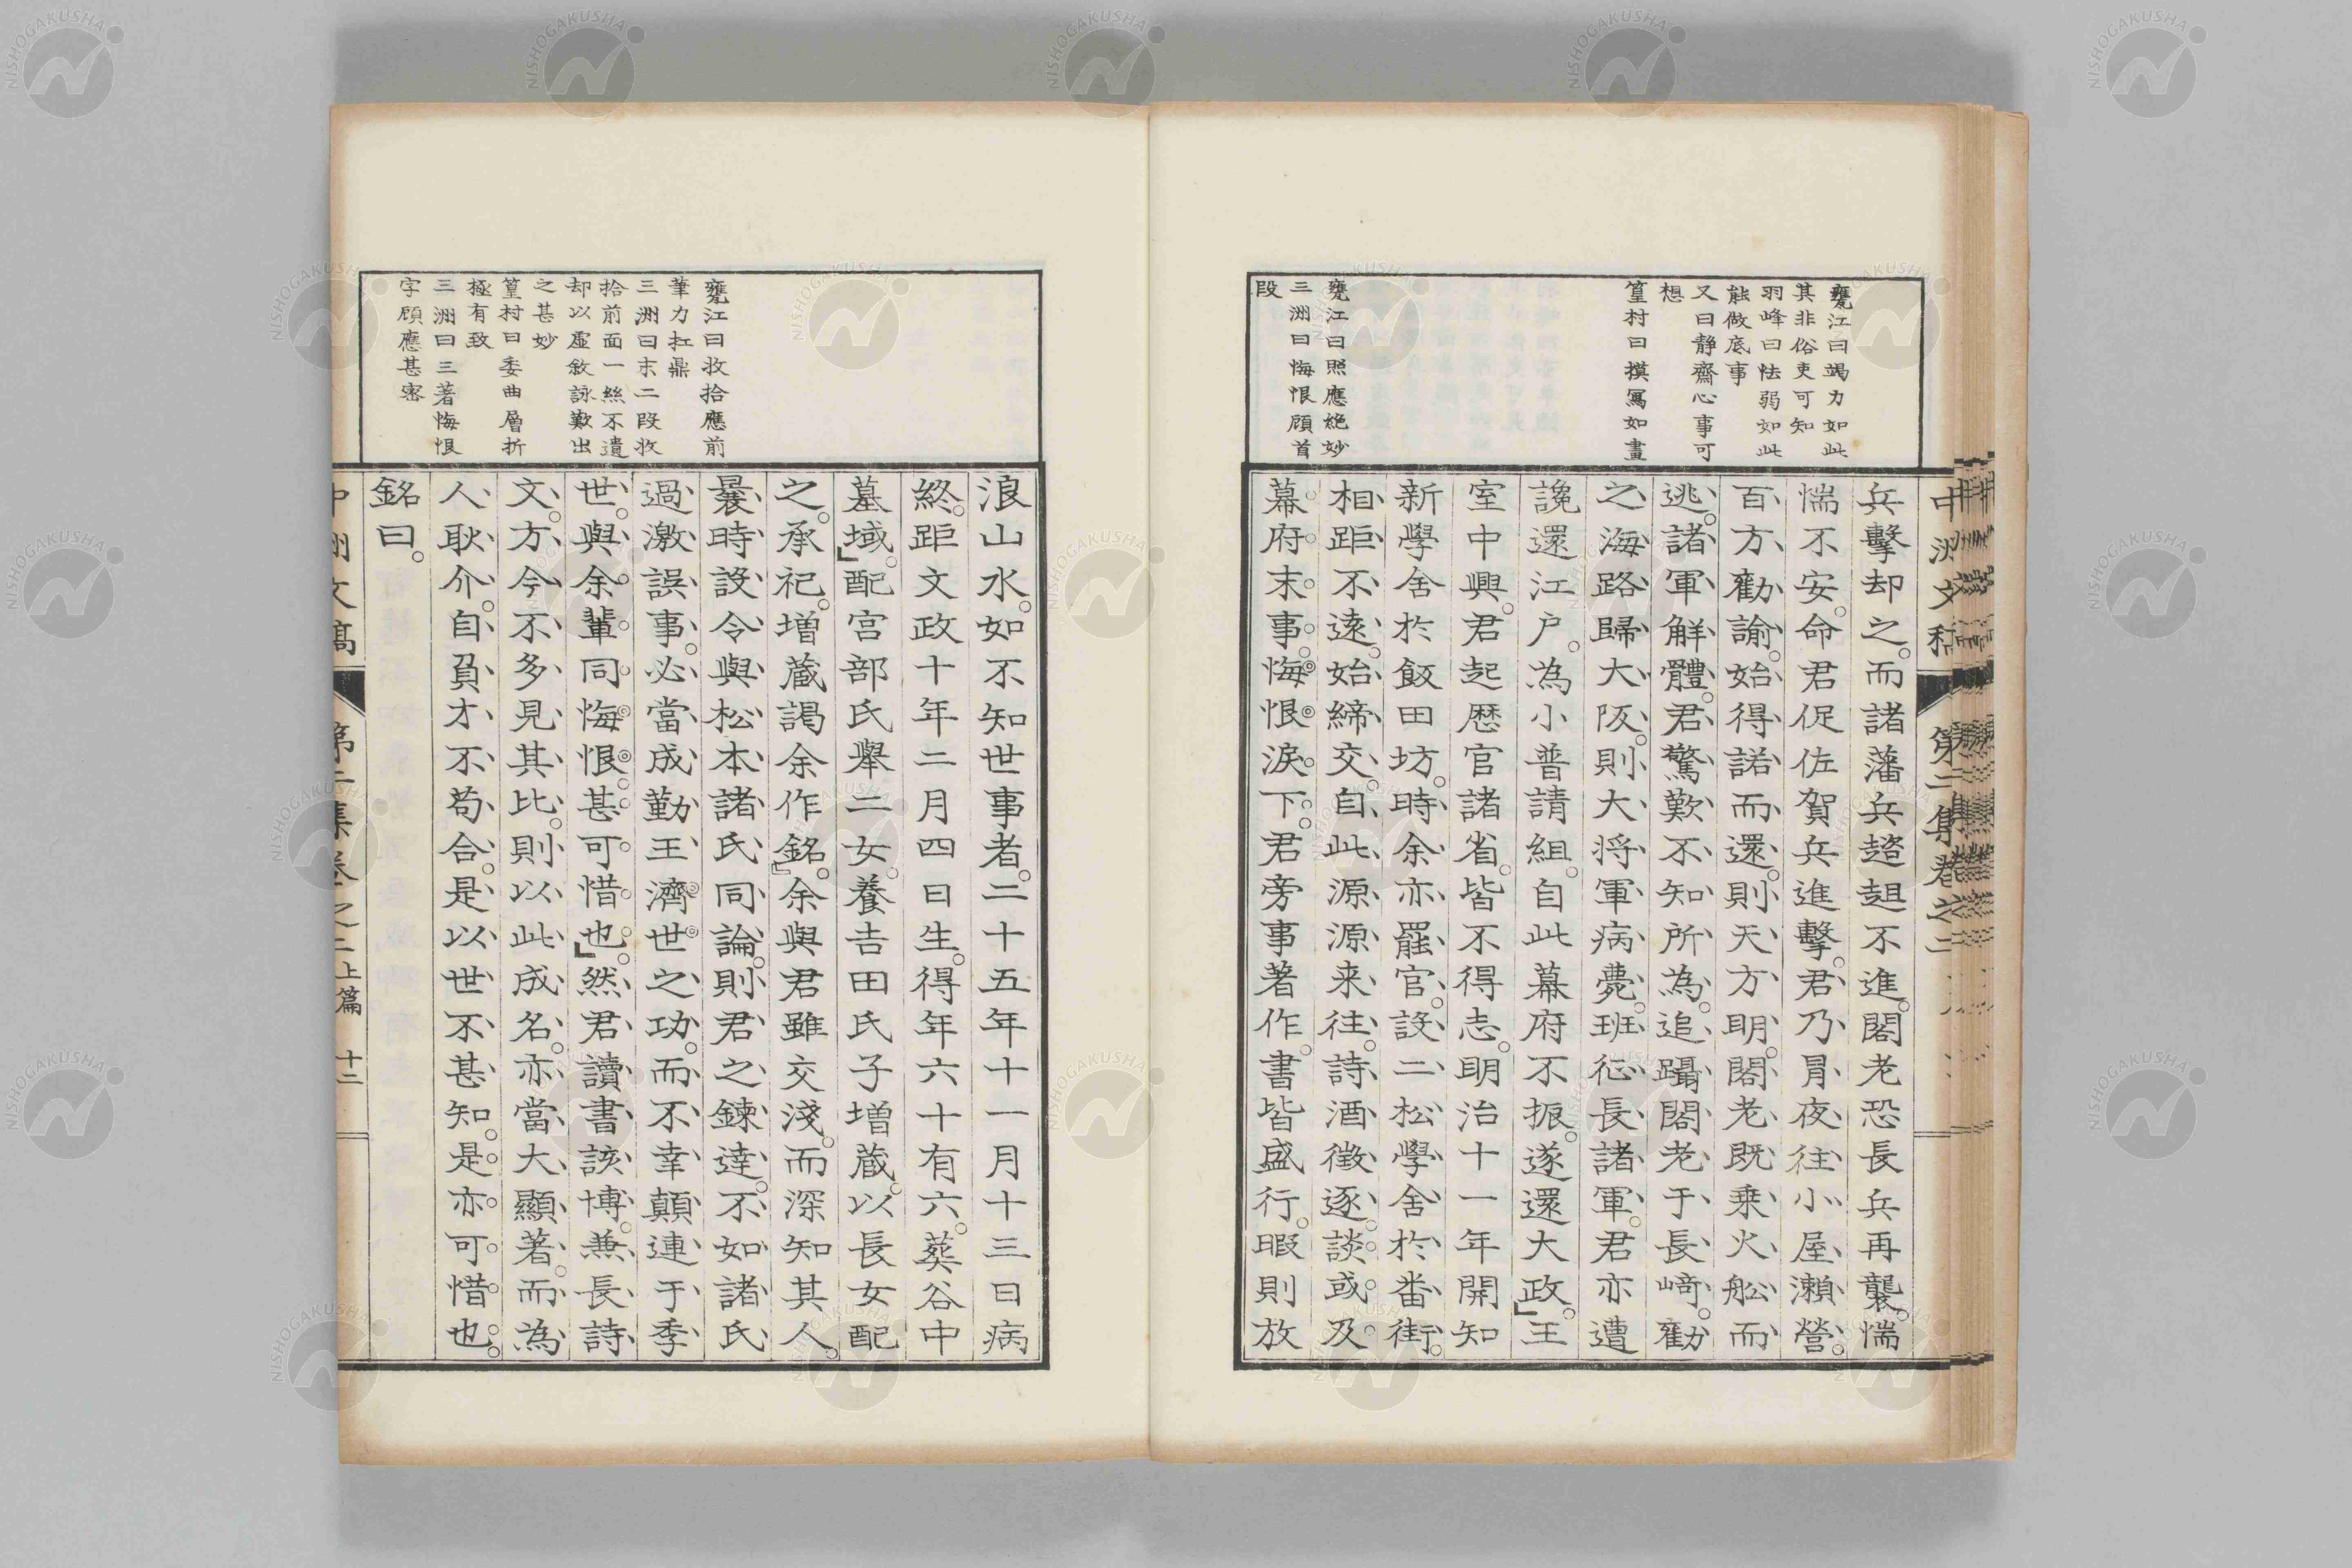 甕江曰竭力如此
其非俗吏可知
羽峰曰怯弱如此
能做底事
又曰靜齋心事可
想
篁村曰摸寫如畫
甕江曰照應絶妙
三洲曰悔恨顧首
段
中洲文稿 第二集卷之二
兵擊却之。而諸藩兵趦趄不進。閣老恐長兵再襲。惴
惴不安。命君促佐賀兵進擊。君乃冐夜往小屋瀨營。
百方勸諭。始得諾而還。則天方明。閣老既乘火船而
逃。諸軍解體。君驚歎不知所為。追躡閣老于長崎。勸
之海路歸大阪。則大將軍病薨。班征長諸軍。君亦遭
讒還江戶。為小普請組。自此幕府不振。遂還大政。王
室中興。君起歷官諸省。皆不得志。明治十一年開知
新學舍於飯田坊。時余亦罷官。設二松學舍於番街。
相距不遠。始締交。自此源源来往。詩酒徵逐。談或及
幕府末事。悔恨淚下。君旁事著作。書皆盛行。暇則放
甕江曰收拾應前
筆力扛鼎
三洲曰末二段收
拾前面一絲不遺
却以虛敘詠歎出
之甚妙
篁村曰委曲層折
極有致
三洲曰三著悔恨
字顧應甚密
浪山水。如不知世事者。二十五年十一月十三日病
終。距文政十年二月四日生。得年六十有六。葬谷中
墓域。配宮部氏舉二女。養吉田氏子增藏。以長女配
之。承祀。增藏謁余作銘。余與君雖交淺。而深知其人。
曩時設令與松本諸氏同論。則君之鍊達。不如諸氏
過激誤事。必當成勤王濟世之功。而不幸顛連于季
世。與余輩同悔恨。甚可惜也。然君讀書該博。兼長詩
文。方今不多見其比。則以此成名。亦當大顯著。而為
人耿介。自負才不苟合。是以世不甚知。是亦可惜也。
銘曰。
中洲文稿 第二集卷之二上篇 十二